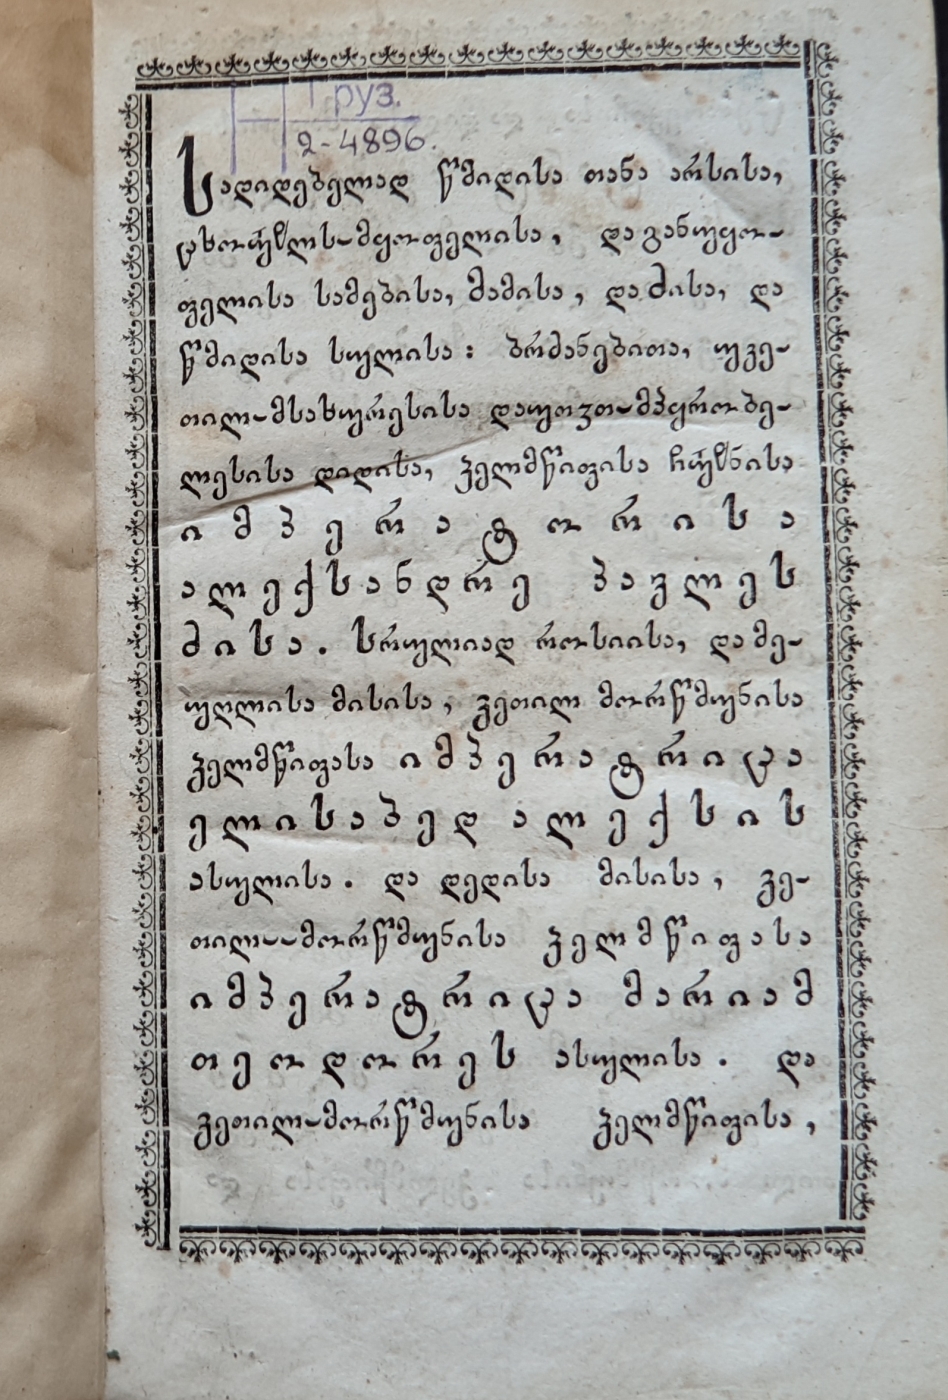 Груз.
2-4896.
სადიდებელად წმიდისა თანა არსისა,
ცხორჱლლს-მყოფელისა, და განუყო-
ფელისა სამებისა, მამისა, და ძისა, და
წმიდისა სულისა: ბრმანებითა, უკე-
თილ-მსახურესისა დაუთვთ-მპყრობე-
ლესისა დიდისა, ჴელმწიფისა ჩნისა
იმპერატორისა
ალექსანდრე პავლეს
ძისა. სრულიად როსიისა, და მე-
უღლისა მისისა, კეთილ მორწმუნისა
ჴელმწიფასა იმპერატრიცა
ელისაბედ ალექსის
ასულისა. და დედისა მისისა, კე-
თილ--მორწმუნისა ჴელმწიფასა
იმპერატრიცა მარიამ
თეოდორეს ასულისა. და
კეთილ-მორწმუნისა ჴელმწიფისა,